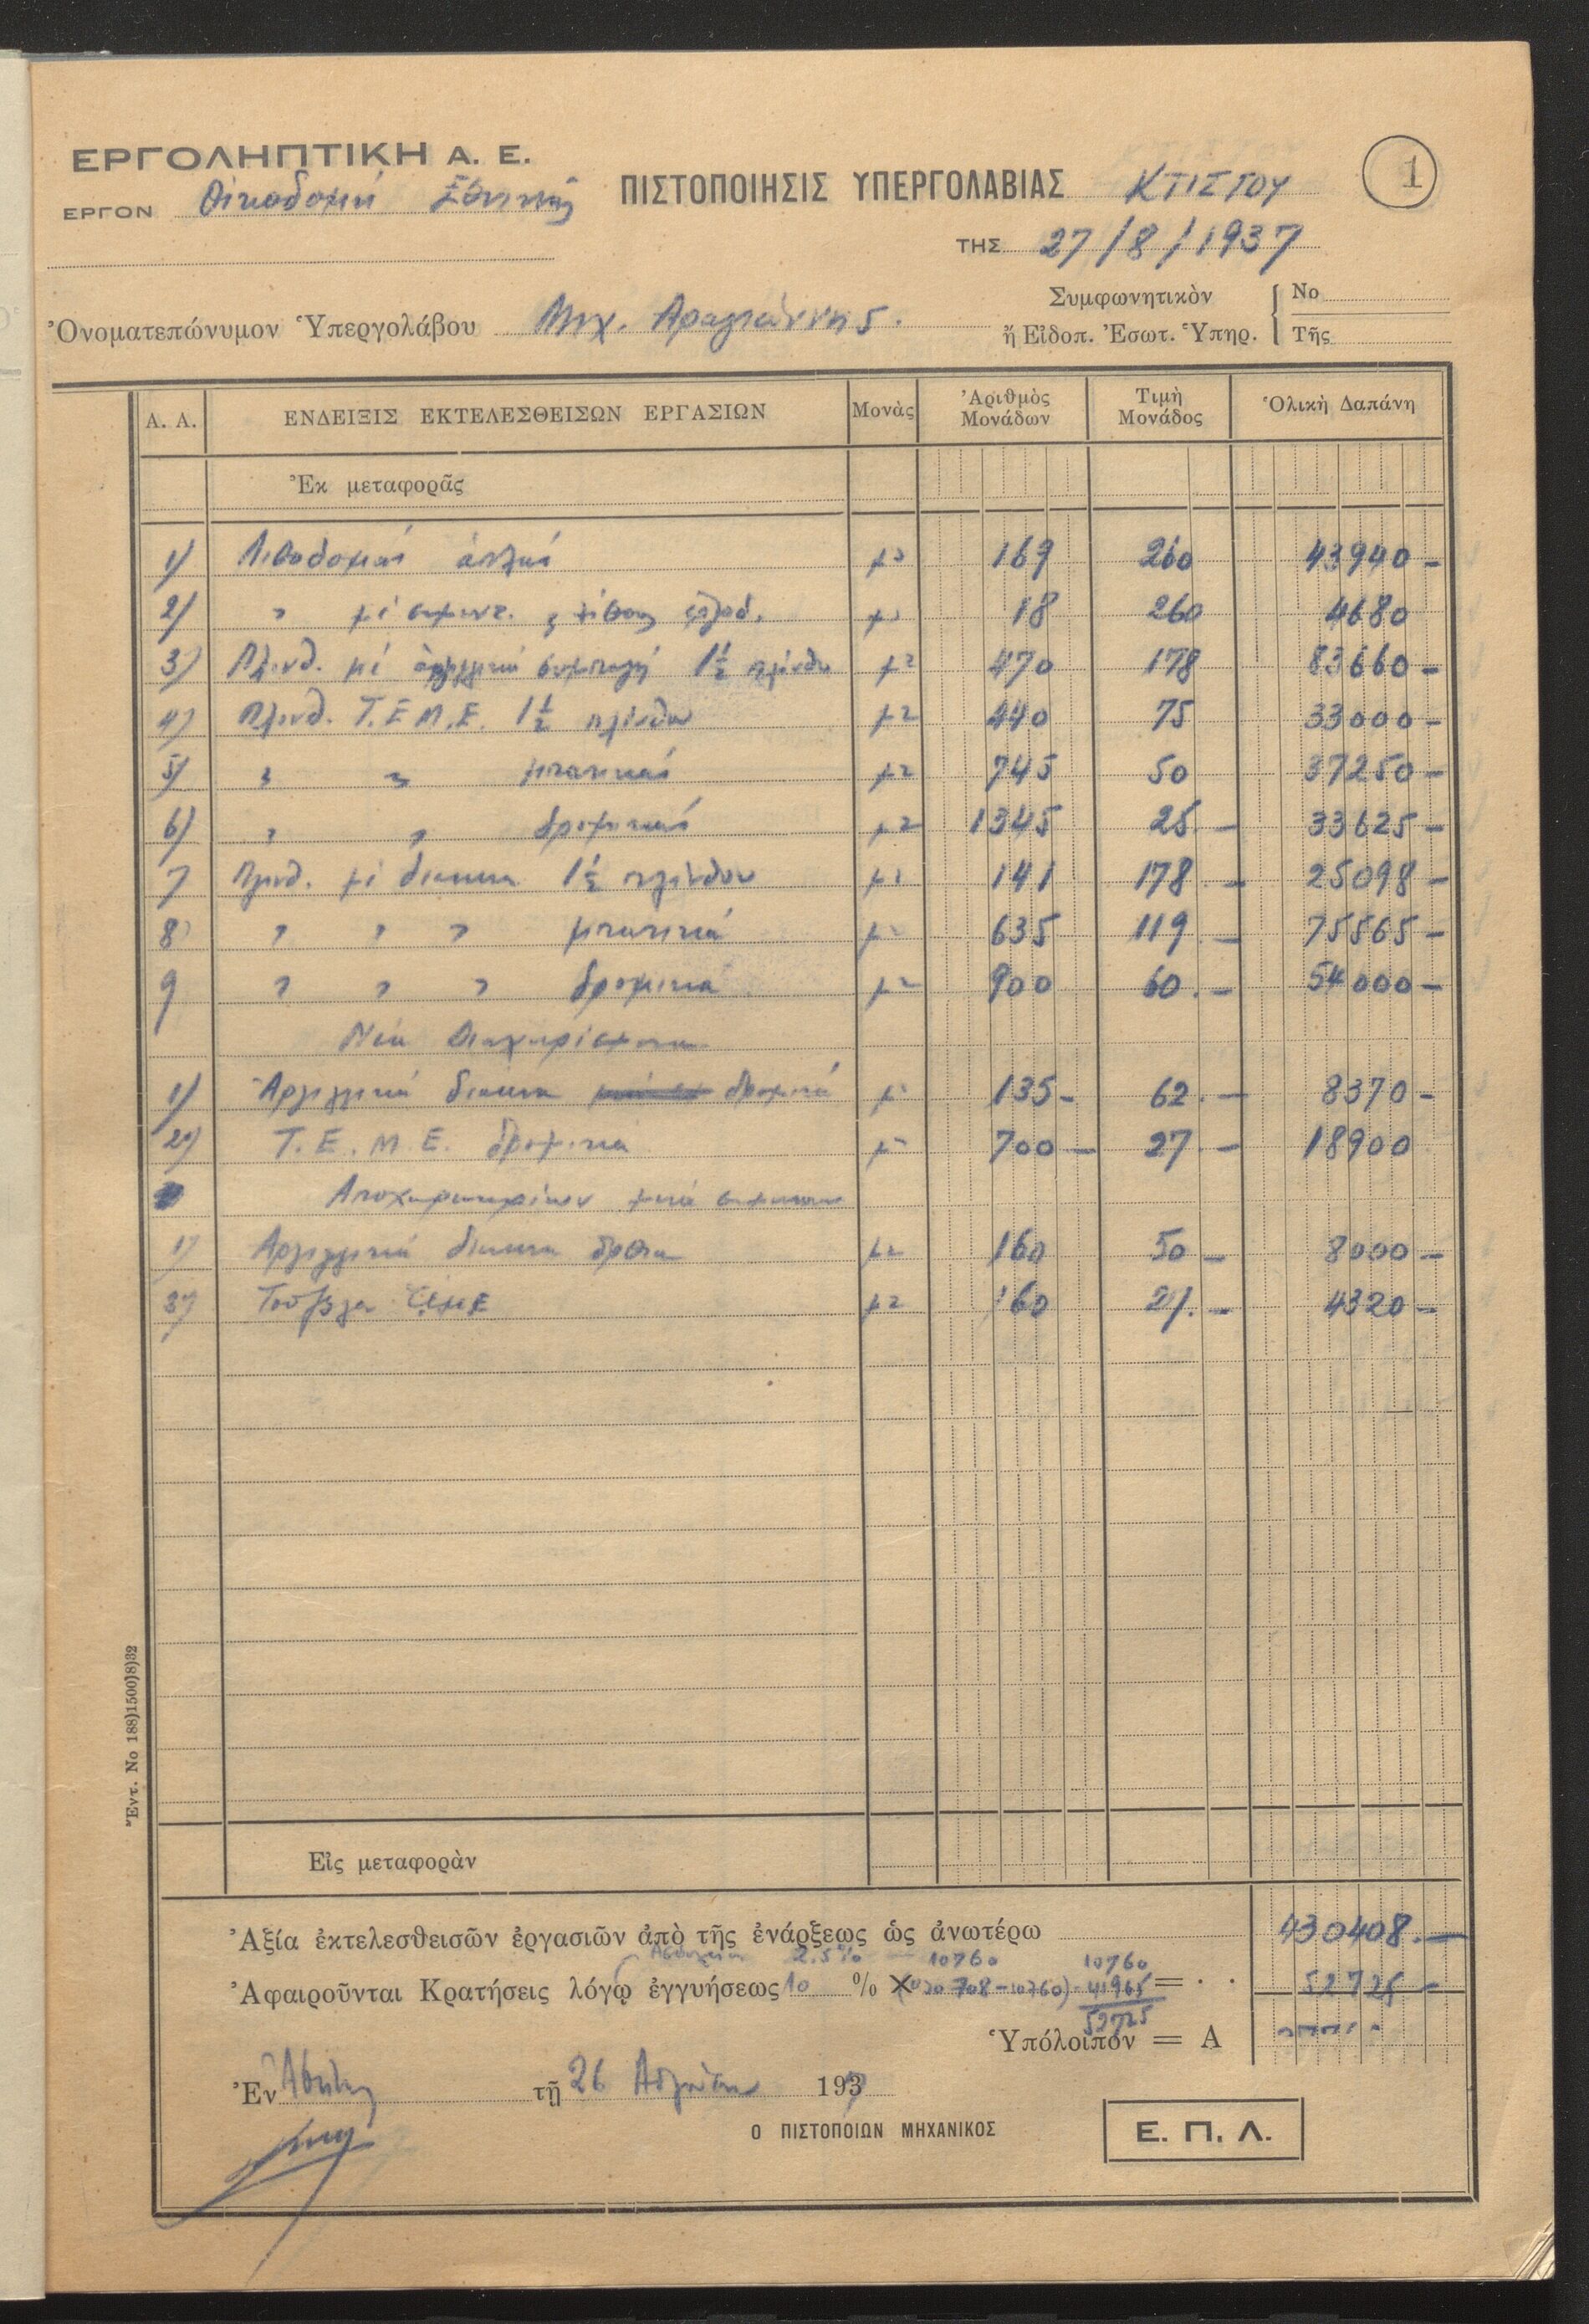 ΕΡΓΟΛΗΠΤΙΚΗ Α. Ε.
ΕΡΓΟΝ Οἰκοδομὴ Ἐθνικῆς
ΠΙΣΤΟΠΟΙΗΣΙΣ ΥΠΕΡΓΟΛΑΒΙΑΣ ΚΤΙΣΤΟΥ
1
ΤΗΣ 27/8/1937
Ὀνοματεπώνυμον Ὑπεργολάβου Μιχ.
Συμφωνητικὸν
ἢ Εἰδοπ. Ἐσωτ. Ὑπηρ.
Νο
Τῆς
Α. Α. ΕΝΔΕΙΞΙΣ ΕΚΤΕΛΕΣΘΕΙΣΩΝ ΕΡΓΑΣΙΩΝ Μονὰς Ἀριθμὸς Μονάδων Τιμὴ Μονάδος Ὁλικὴ Δαπάνη
Ἐκ μεταφορᾶς
1) Λιθοδομαὶ ἁπλαῖ μ3 169 260 43940 –
2) " μὲ 18 260 4680
3) Πλινθ. μὲ 1½ πλίνθου μ2 470 178 83660 –
4) Πλινθ. Τ.Ε.Μ.Ε. 1½ πλίνθου μ2 440 75 33000 –
5) " " μπατικαὶ μ2 745 50 37250 –
6) " " δρομικαὶ μ2 1345 25. – 33625 –
7 Πλινθ. μὲ διάκενα 1½ πλίνθου μ2 141 178. – 25098 –
8) " " " μπατικά μ2 635 119. – 75565 –
9 " " " δρομικά μ2 900 60. – 54000 –
Νέα Διαχωρίσματα
1) διάκενα δρομικά μ2 135 – 62. – 8370 –
2) Τ.Ε.Μ.Ε. δρομικά μ2 700 – 27. – 18900
1) διάκενα ὄρθια μ2 160 50 – 8000 –
2) Τοῦβλα ΤΕΜΕ μ2 160 27. – 4320 –
Εἰς μεταφορὰν
Ἀξία ἐκτελεσθεισῶν ἐργασιῶν ἀπὸ τῆς ἐνάρξεως ὡς ἀνωτέρω 430408. –
2.5% – 10760 10760
Ἀφαιροῦνται Κρατήσεις λόγῳ ἐγγυήσεως 10 % × 41965 = . . 52725 –
52725
Ὑπόλοιπον = Α
Ἐν Ἀθήναις τῇ 26 Αὐγούστου 1937
Ο ΠΙΣΤΟΠΟΙΩΝ ΜΗΧΑΝΙΚΟΣ
Ε. Π. Λ.
Ἔντ. Νο 188)1500)8)32